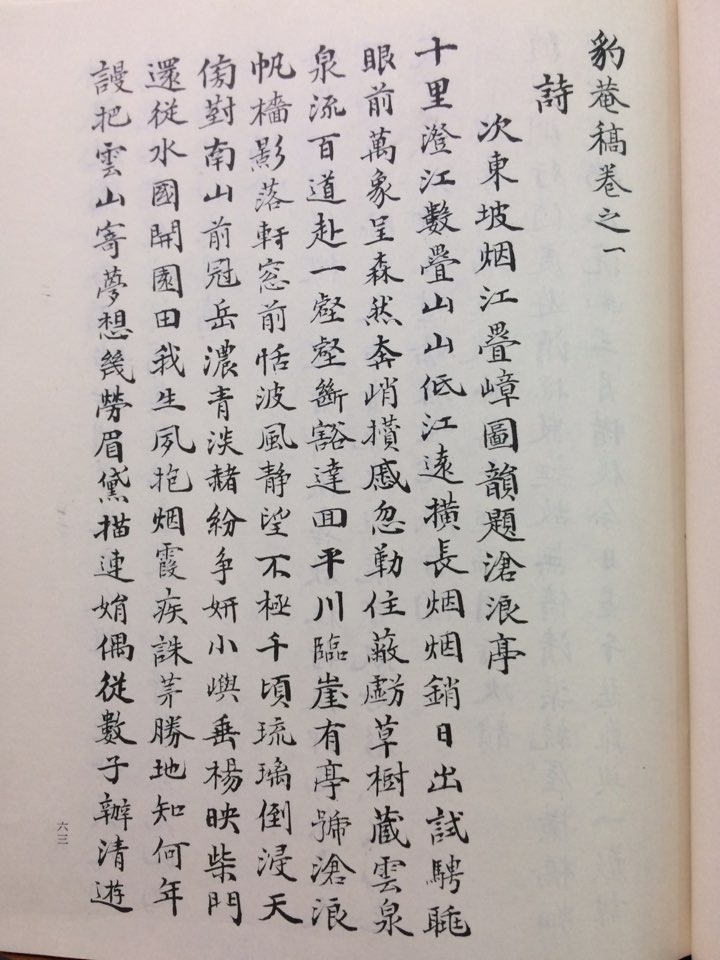 豹菴稿卷之一
詩
次東坡烟江疊嶂圖韻題滄浪亭
十里澄江數疊山山低江遠橫長烟烟銷日出試騁眺
眼前萬象呈森然奔峭攢蹙忽勒住蔽虧草樹藏雲泉
泉流百道赴一壑壑斷豁達回平川臨崖有亭號滄浪
帆檣影落軒窓前恬波風靜望不極千頃琉璃倒浸天
傍對南山前冠岳濃青淡赭紛争姸小嶼垂楊映柴門
還從水國開園田我生夙抱烟霞疾誅茅勝地知何年
謾把雲山寄夢想幾勞眉黛描連娟偶從數子辦清遊
六三